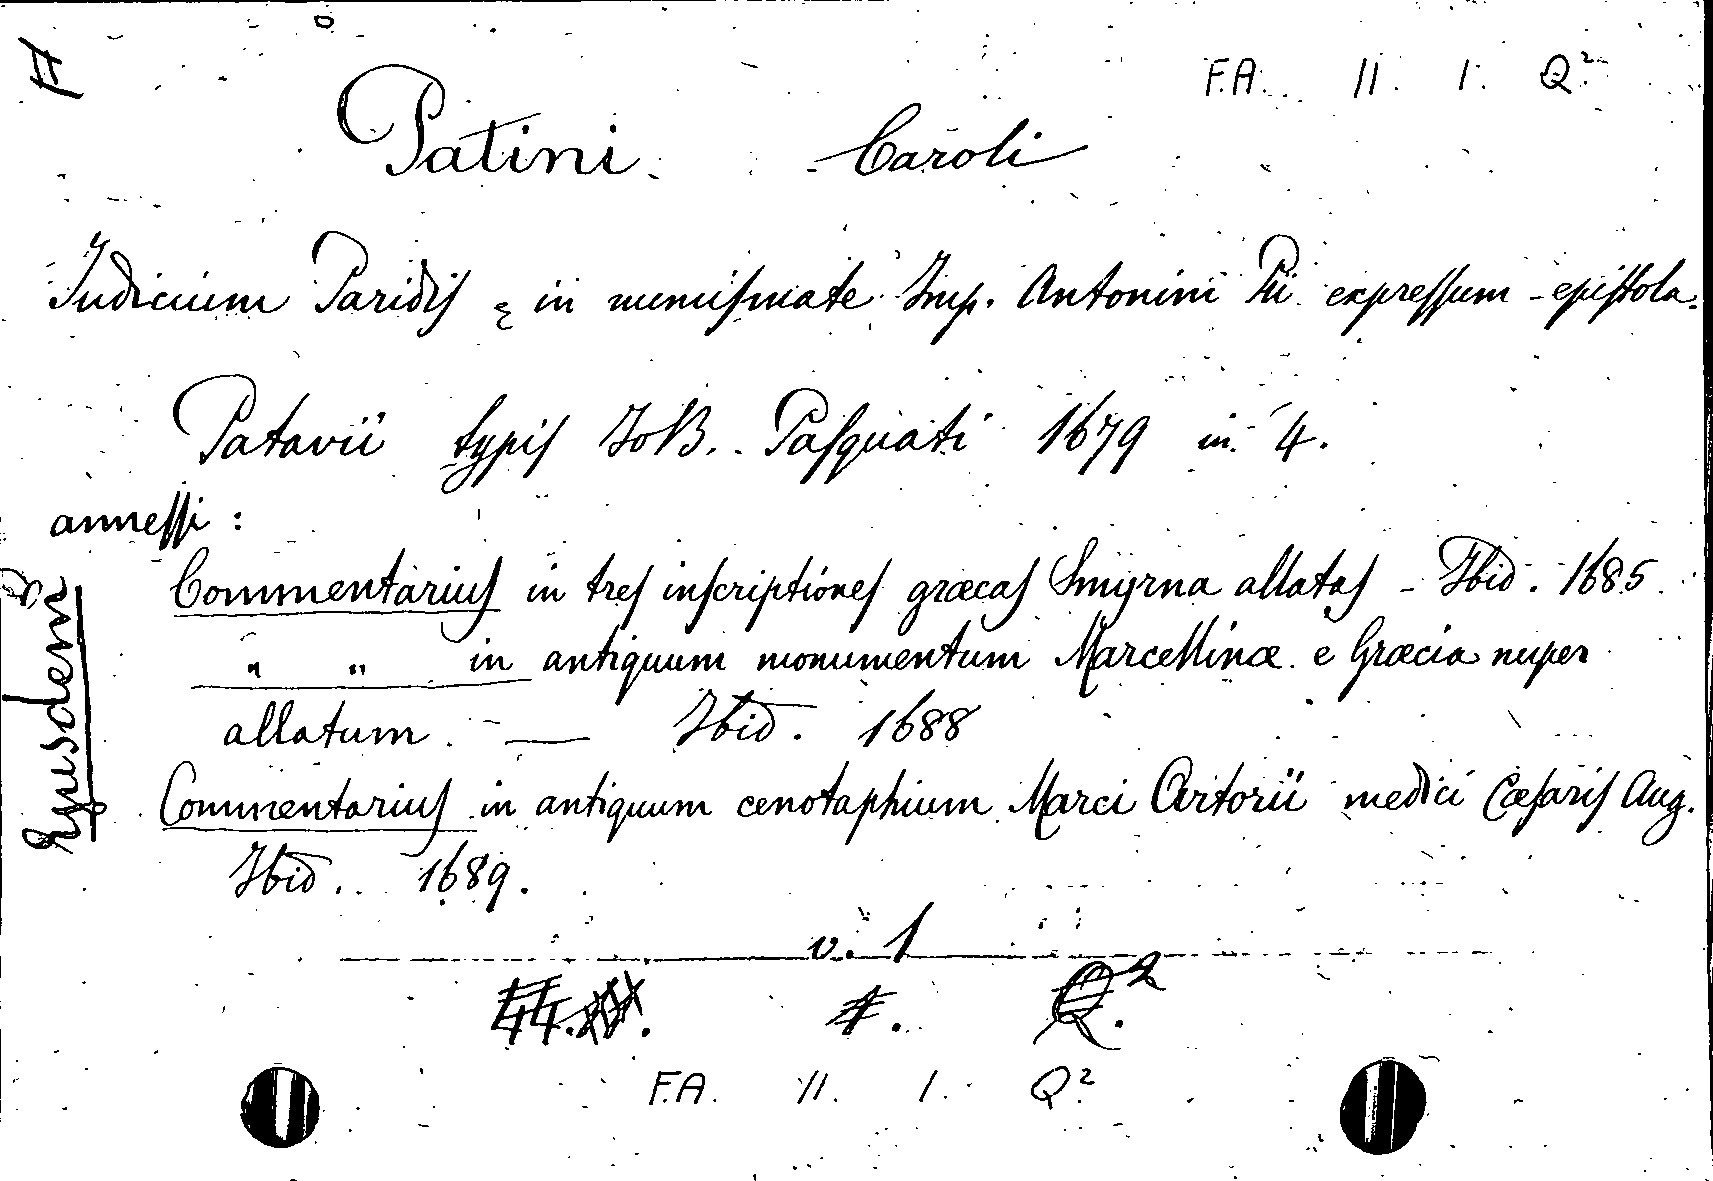 F.A. II. I. Q².
Patini Caroli
Iudicium Paridis in numismate Imp. Antonini Pii expressum - epistola.
Patavii typis Io B. Pasquati 1679 in 4.
annessi :
Ejusdem
Commentarius in tres inscriptiones græcas Smyrna allatas - Ibid. 1685
" " in antiquum monumentum Marcellinæ e Græcia nuper
allatum. — Ibid. 1688
Commentarius in antiquum cenotaphium Marci Artorii medici Cæsaris Aug.
Ibid. 1689.
v. 1
Q².
F.A. II. I. Q²